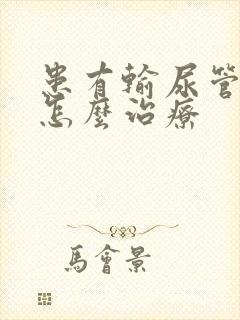 患有輸尿管
怎麼治療
馬會景